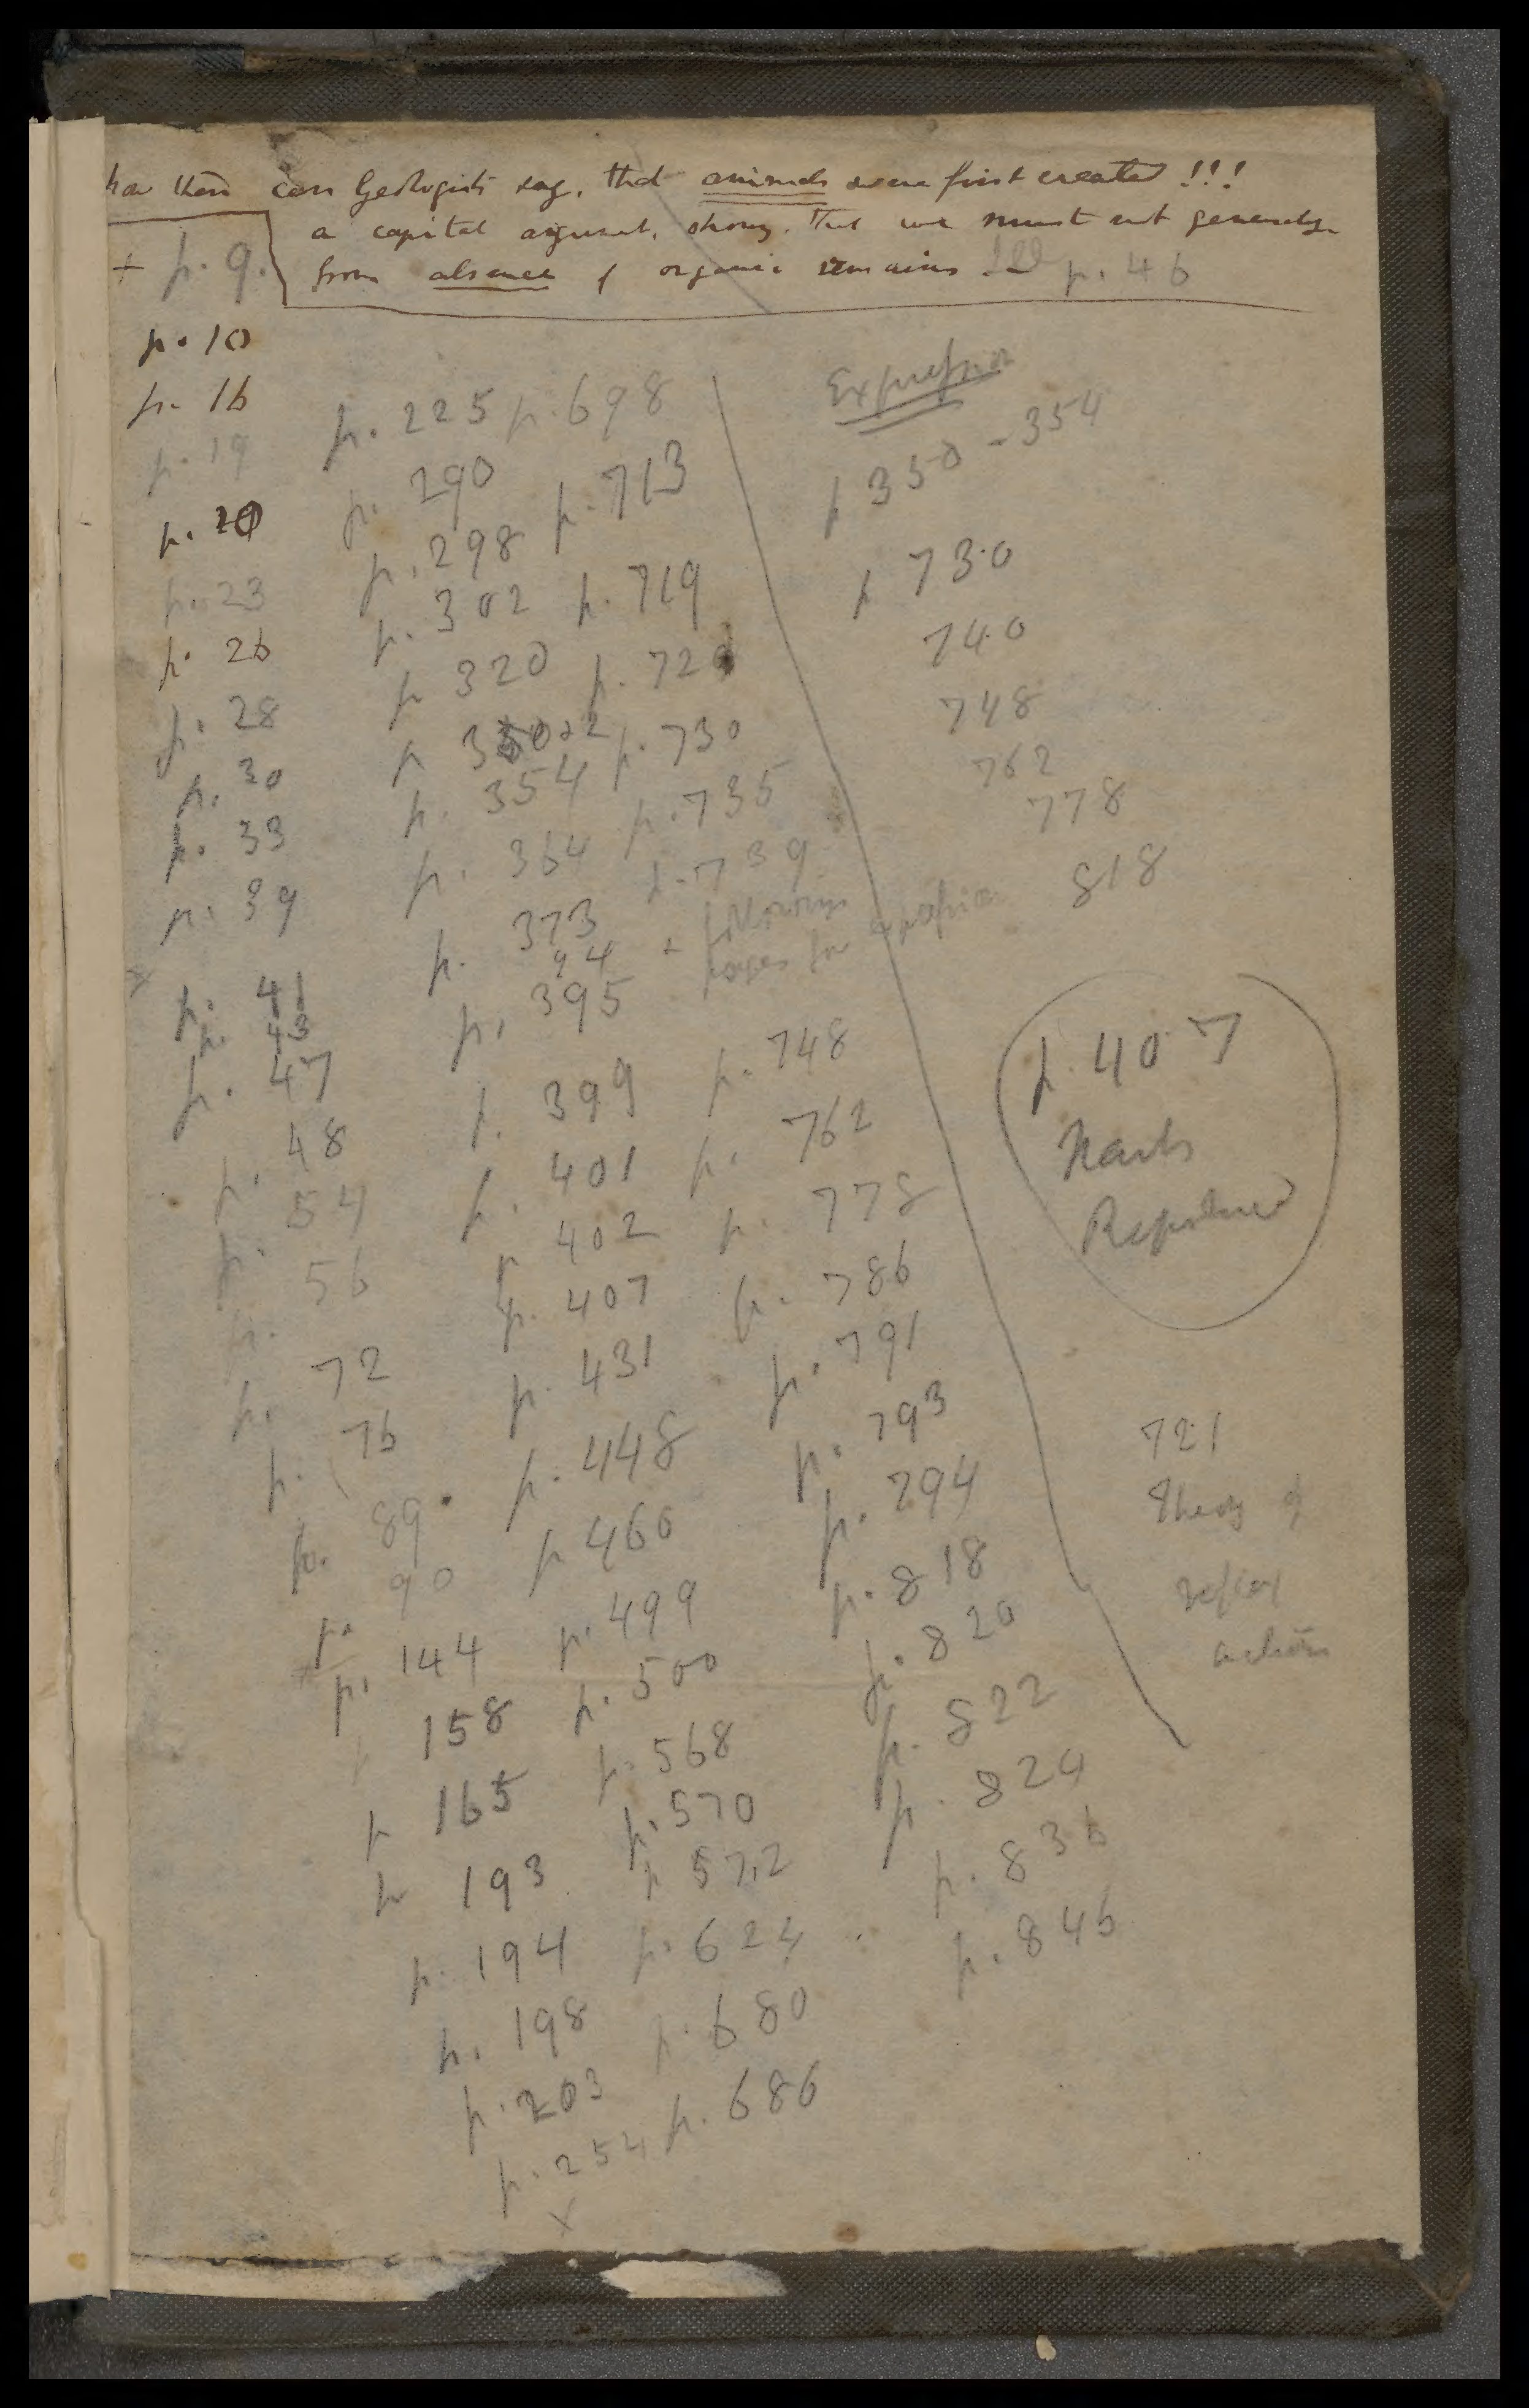 how then can Geologists say, that animals were first created !!!
a capital argument, showing. that we must not generalize
from absence of organic remains !!! p. 46
+ p. 9.
p. 10
p. 16
p. 19
p. 20
p. 23
p. 26
p. 28
p. 30
p. 33
p. 39
x
p. 41
p. 43
p. 47
p. 48
p. 54
p. 56
p. 72
p. 76
p. 89
p. 90
p. 144
158
p 165
p 193
p. 194
p. 198
p. 203
p. 254
x
p. 225
p. 290
p. 298
p. 302
p 320
p
p. 354
p. 364
p. 373
94
p. 395
p. 399
p. 401
p 402
p. 407
p. 431
p. 448
p 466
p. 499
p. 500
p. 568
p. 570
p 572
p. 624
p. 680
p. 686
p. 698
p. 713
p. 719
p. 720
p. 730
p. 735
p. 739
+ following
pages for expression
p. 748
p. 762
p. 778
p. 786
p. 791
p. 793
p. 794
p. 818
p. 820
p. 822
p. 824
p. 836
p. 846
Expression
p 350-354
p 730
740
748
762
778
818
p. 407
Nails
Reproduced
721
Theory of
reflex
action